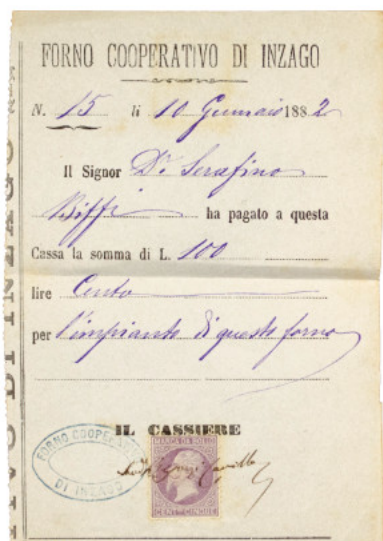 FORNO COOPERATIVO DI INZAGO
N. 15 li 10 Gennaio 1882
Il Signor Dr. Serafino
Biffi ha pagato a questa
Cassa la somma di L. 100
lire Cento
per l'impianto di questo forno
IL CASSIERE
FORNO COOPERATIVO
DI INZAGO
MARCA DA BOLLO
CENT. CINQUE